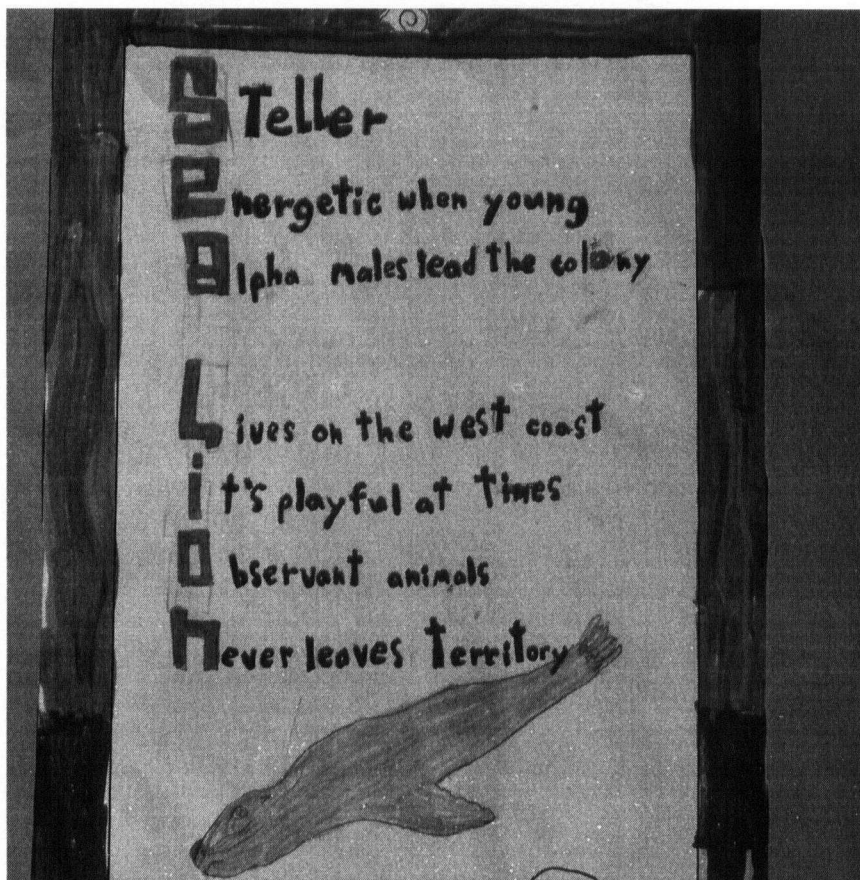 STeller
energetic when young
alpha males lead the colony
Lives on the west coast
it's playful at times
observant animals
never leaves territory